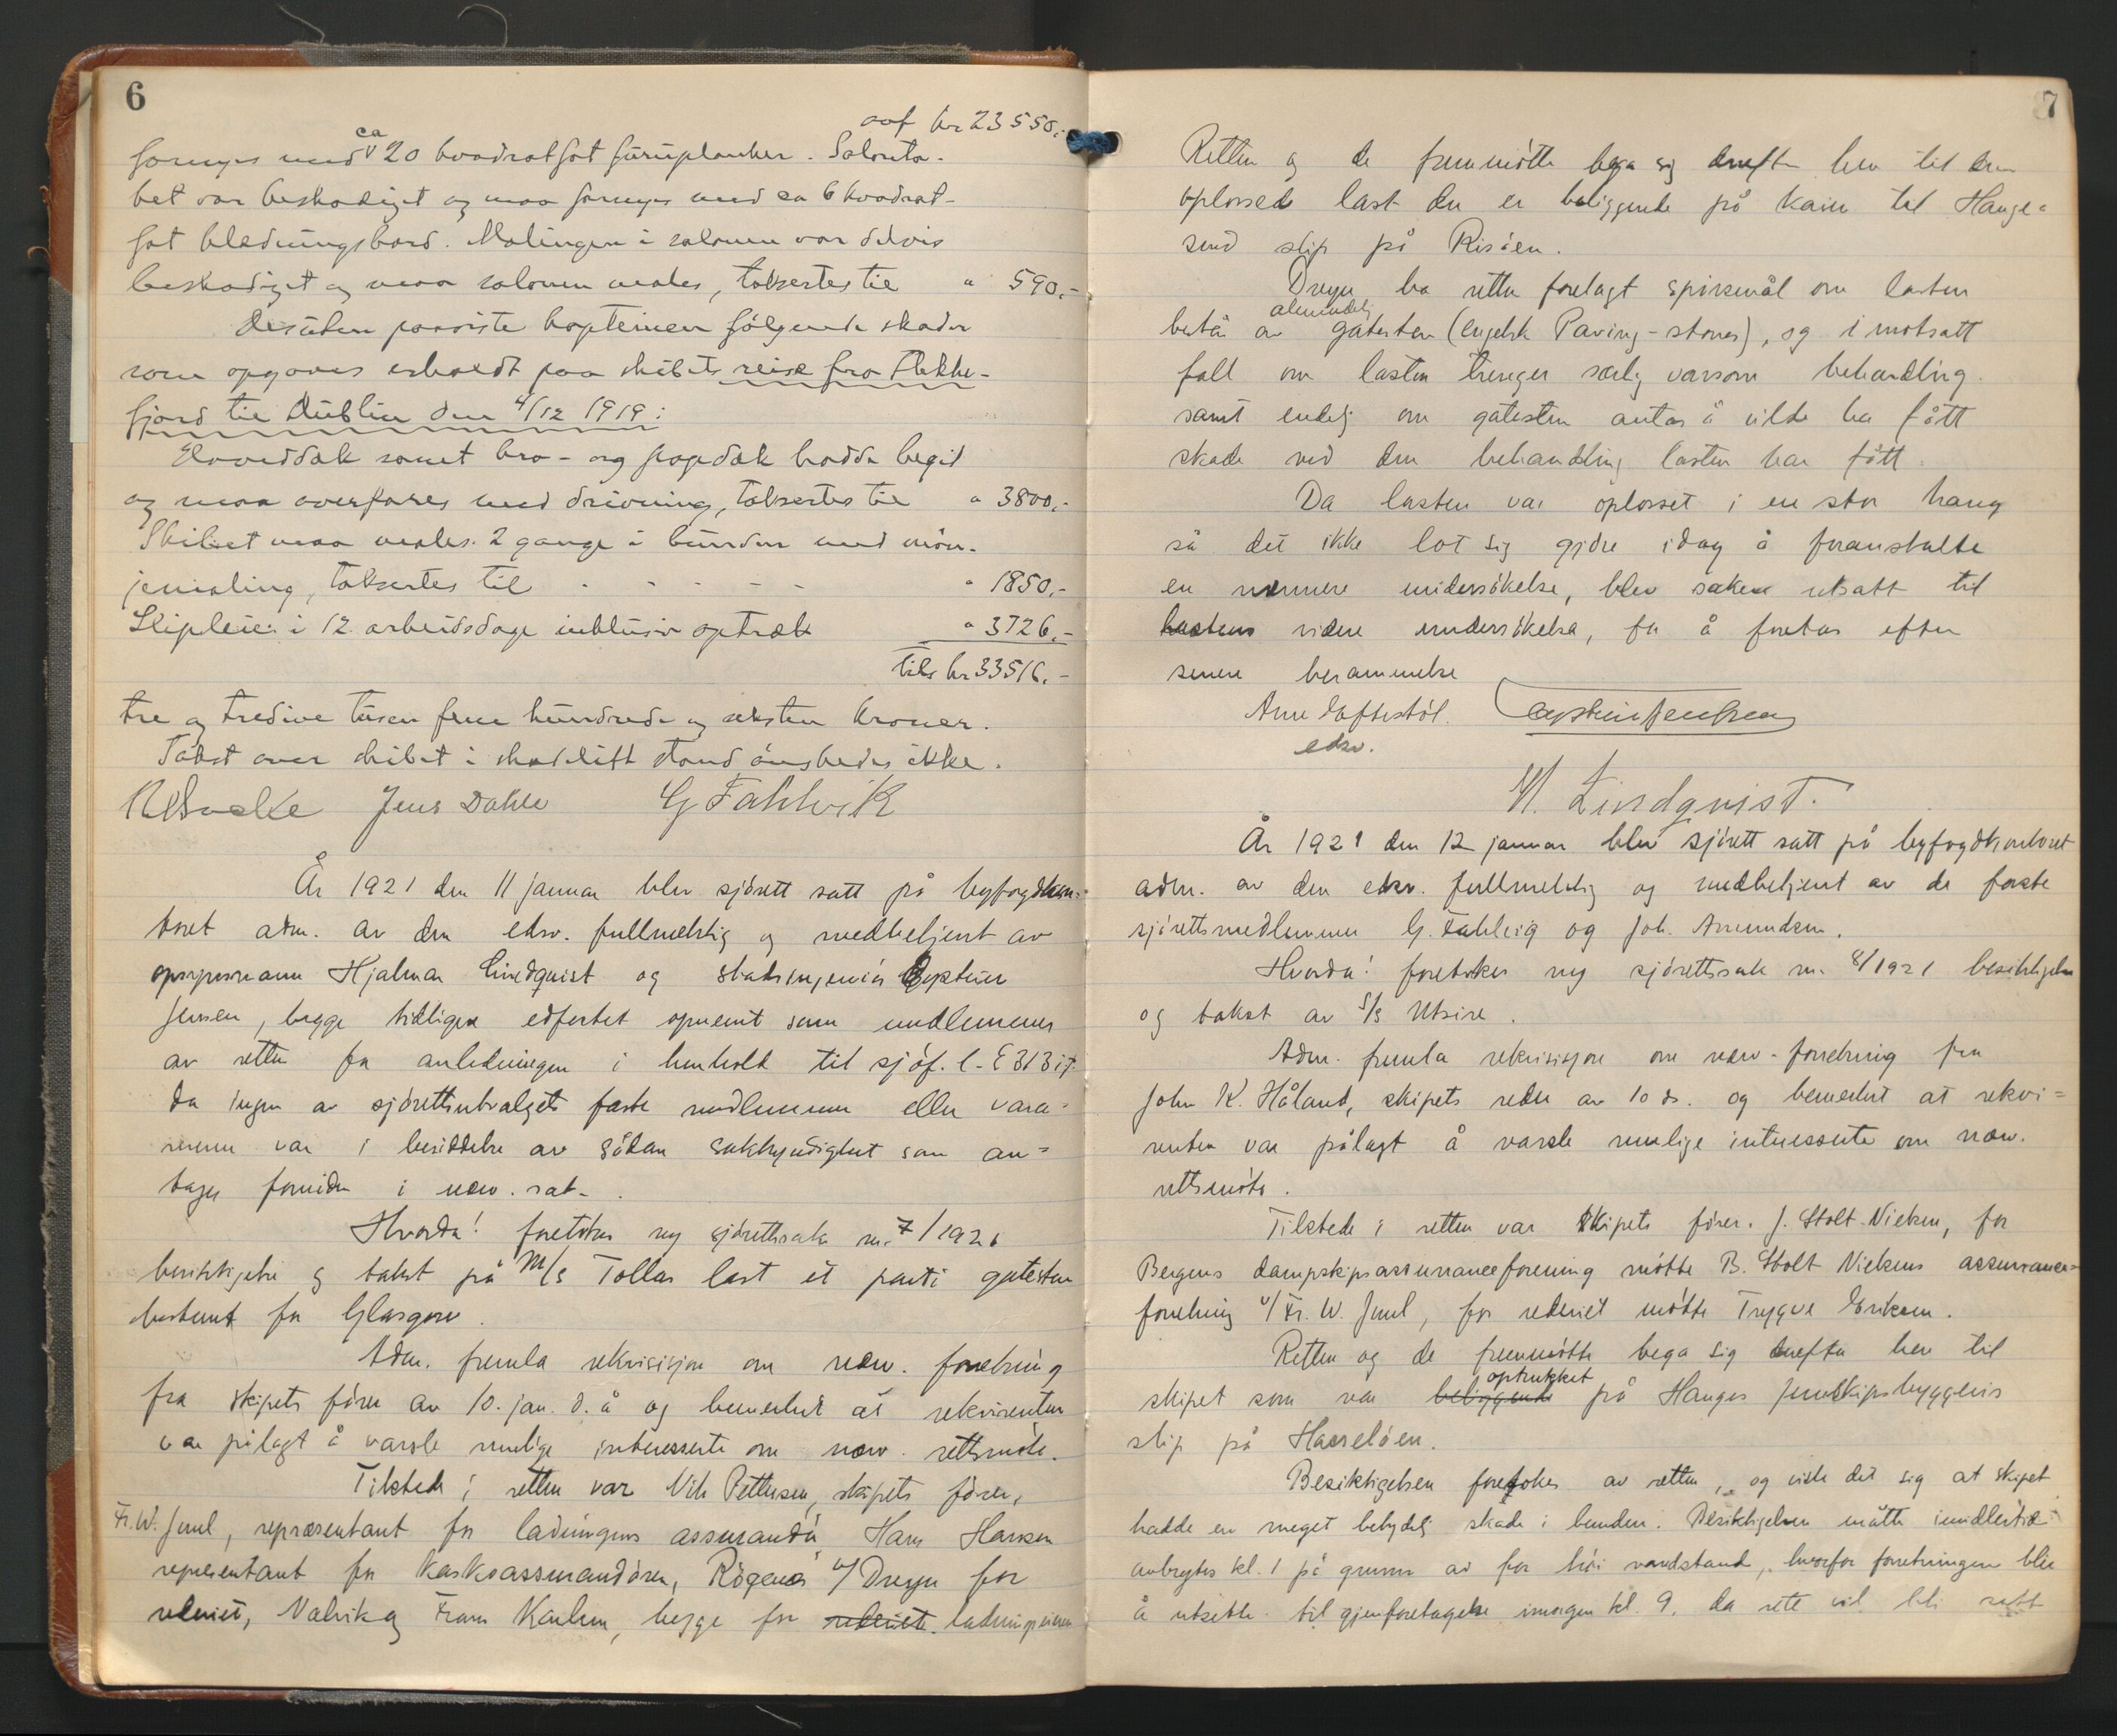 6
ovf kr 23550,-
fornyes med ca 20 kvadratfot furuplanker. Salonta-
ket var beskadiget og maa fornyes med ca 6 kvadrat-
fot klædningsbord. Malingen i salonen var delvis
beskadiget og maa salonen males, takseres til " 590,-
Desuten paaviste kapteinen følgende skader
som opgaves erholdt paa skibets reise fra Flekke-
fjord til Dublin den 4/12 1919:
Hoveddæk samt bro- og poopdæk hadde begit
og maa overfares med drivning, takseres til " 3800,-
Skibet maa males 2 gange i bunden med møn-
jemaling, takseres til - - - - - " 1850,-
Slipleie i 12 arbeidsdage inklusiv optræk " 3726,-
Tils kr 33516,-
tre og tredive tusen fem hundrede og seksten kroner.
Takst over skibet i skadelidt stand ønskedes ikke.
Jens Dahle G Fahlvik
År 1921 den 11 januar blev sjørett satt på byfogdkon-
toret adm. av den edsv. fullmektig og medbetjent av
Hjalmar Lindquist og stadsingeniør Eystein
Jensen, begge tidligere edfestet opnevnt som medlemmer
av retten for anledningen i henhold til sjøf. l. § 313 ij.
da ingen av sjørettsutvalgets faste medlemmer eller vara-
menn var i besiddelse av sådan sakkyndighet som an-
tages fornøden i nevn. sak.
Hvorda! foretokes ny sjørettssak nr. 7/1921
besiktigelse og takst på M/S Tollas last et parti gatesten
bestemt for Glasgow.
Adm. fremla rekvisisjon om nevn. forretning
fra skipets fører av 10. jan. d. å og bemerket at rekvirenten
var pålagt å varsle mulige interesserte om nevn. rettsmøte.
Tilstede i retten var Nils Pettersen, skipets fører,
Fr. W. Juul, repræsentant for ladningens assurandør, Hans Hansen
representant for kaskoassurandøren, v/ Dreyer for
rederiet, Valvik og Fram Karlsen, begge for rederiet ladningseieren
7
Retten og de fremmøtte bega sig derefter hen til den
oplossede last der er beliggende på kaien til Hauge-
sund slip på Risøen.
Dreyer ba retten forelagt spørsmål om lasten
består av almindelig gatesten (engelsk Paving-stones), og i motsatt
fall om lasten trenger særlig varsom behandling.
samt endelig om gatesten antas å ville ha fått
skade ved den behandling lasten har fått.
Da lasten var oplosset i en stor haug
så det ikke lot sig gjøre idag å foranstalte
en nærmere undersøkelse, blev saken utsatt til
lastens videre undersøkelse, for å foretas efter
senere berammelse
Arne Loftestøl. Eystein Jensen
edsv.
Hj. Lindquist.
År 1921 den 12 januar blev sjørett satt på byfogdkontoret
adm. av den edsv. fullmektig og medbetjent av de faste
sjørettsmedlemmer G. Fahlvig og Joh. Amundsen.
Hvorda! foretokes ny sjørettssak nr. 8/1921 besiktigelse
og takst av S/S Utsire.
Adm. fremla rekvisisjon om nevn. forretning fra
John K. Håland, skipets reder av 10 ds. og bemerket at rekvi-
renten var pålagt å varsle mulige interesserte om nevn.
rettsmøte.
Tilstede i retten var skipets fører. J. Stolt-Nielsen, for
Bergens dampskipsassuranceforening møtte B. Stolt Nielsens assurance-
forretning v/ Fr. W. Juul, for rederiet møtte Trygve Eriksen.
Retten og de fremmøtte bega sig derefter hen til
skipet som var beliggende optrukket på Hauges Jernskipsbyggeris
slip på Hasseløen.
Besiktigelsen foretokes av retten, og viste det sig at skipet
hadde en meget betydelig skade i bunden. Besiktigelsen måtte imidlertid
avbrytes kl. 1 på grunn av for høi vandstand, hvorfor forretningen blev
å utsette til gjenforetagelse imorgen kl. 9, da rett vil bli satt